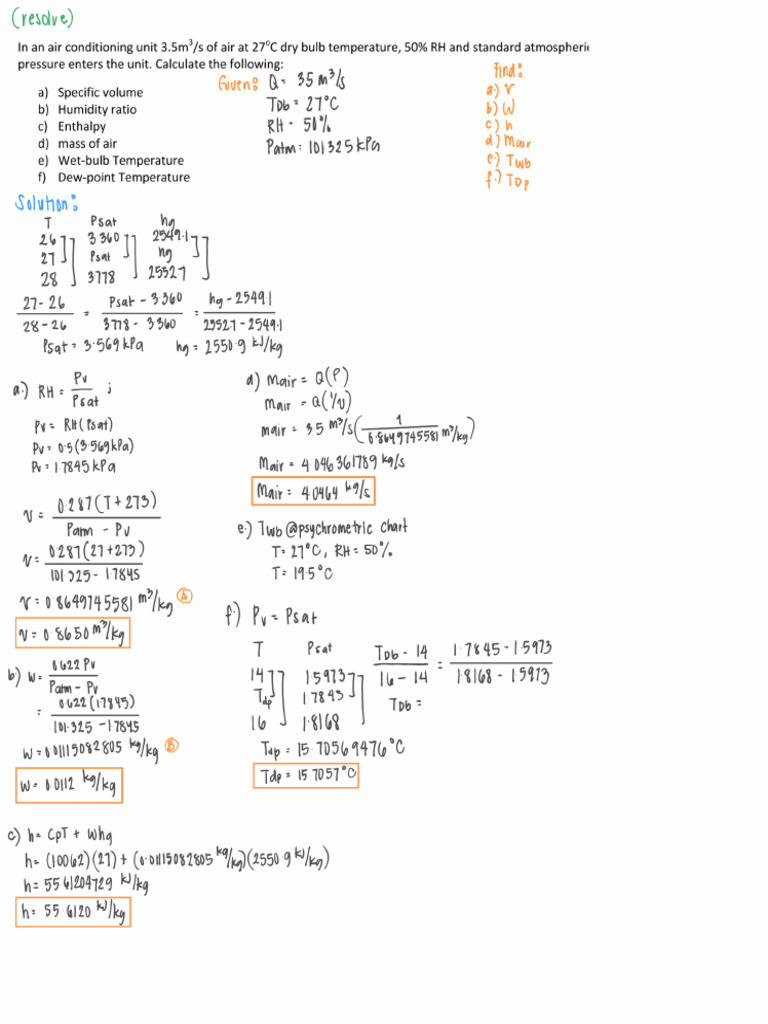 (resolve)
In an air conditioning unit 3.5m³/s of air at 27°C dry bulb temperature, 50% RH and standard atmospheric
pressure enters the unit. Calculate the following:
a) Specific volume
b) Humidity ratio
c) Enthalpy
d) mass of air
e) Wet-bulb Temperature
f) Dew-point Temperature
Given: Q = 3.5 m³/s
TDb = 27°C
RH = 50%
Patm = 101.325 kPa
Find:
a.) v
b.) W
c.) h
d.) Mair
e.) Twb
f.) TDp
Solution:
T Psat hg
26 3.360 2549.1
27 Psat hg
28 3.778 2552.7
27-26 / 28-26 = Psat - 3.360 / 3.778 - 3.360 = hg - 2549.1 / 2552.7 - 2549.1
Psat = 3.569 kPa hg = 2550.9 kJ/kg
a.) RH = Pv / Psat ;
Pv = RH(Psat)
Pv = 0.5(3.569kPa)
Pv = 1.7845 kPa
v = 0.287(T+273) / Patm - Pv
v = 0.287(27+273) / 101.325 - 1.7845
v = 0.8649745581 m³/kg (A)
v = 0.8650 m³/kg
b) W = 0.622 Pv / Patm - Pv
= 0.622(1.7845) / 101.325 - 1.7845
W = 0.01115082805 kg/kg (B)
W = 0.0112 kg/kg
c) h = CpT + Whg
h = (1.0062)(27) + (0.01115082805 kg/kg)(2550.9 kJ/kg)
h = 55.61204729 kJ/kg
h = 55.6120 kJ/kg
d) Mair = Q(P)
Mair = Q(1/v)
mair = 3.5 m³/s (1 / 0.8649745581 m³/kg)
Mair = 4.046361789 kg/s
Mair = 4.0464 kg/s
e.) Twb @psychrometric chart
T = 27°C, RH = 50%
T = 19.5°C
f.) Pv = Psat
T Psat
14 1.5973
Tdp 1.7845
16 1.8168
TDb - 14 / 16 - 14 = 1.7845 - 1.5973 / 1.8168 - 1.5973
TDb =
Tdp = 15.70569476°C
Tdp = 15.7057°C